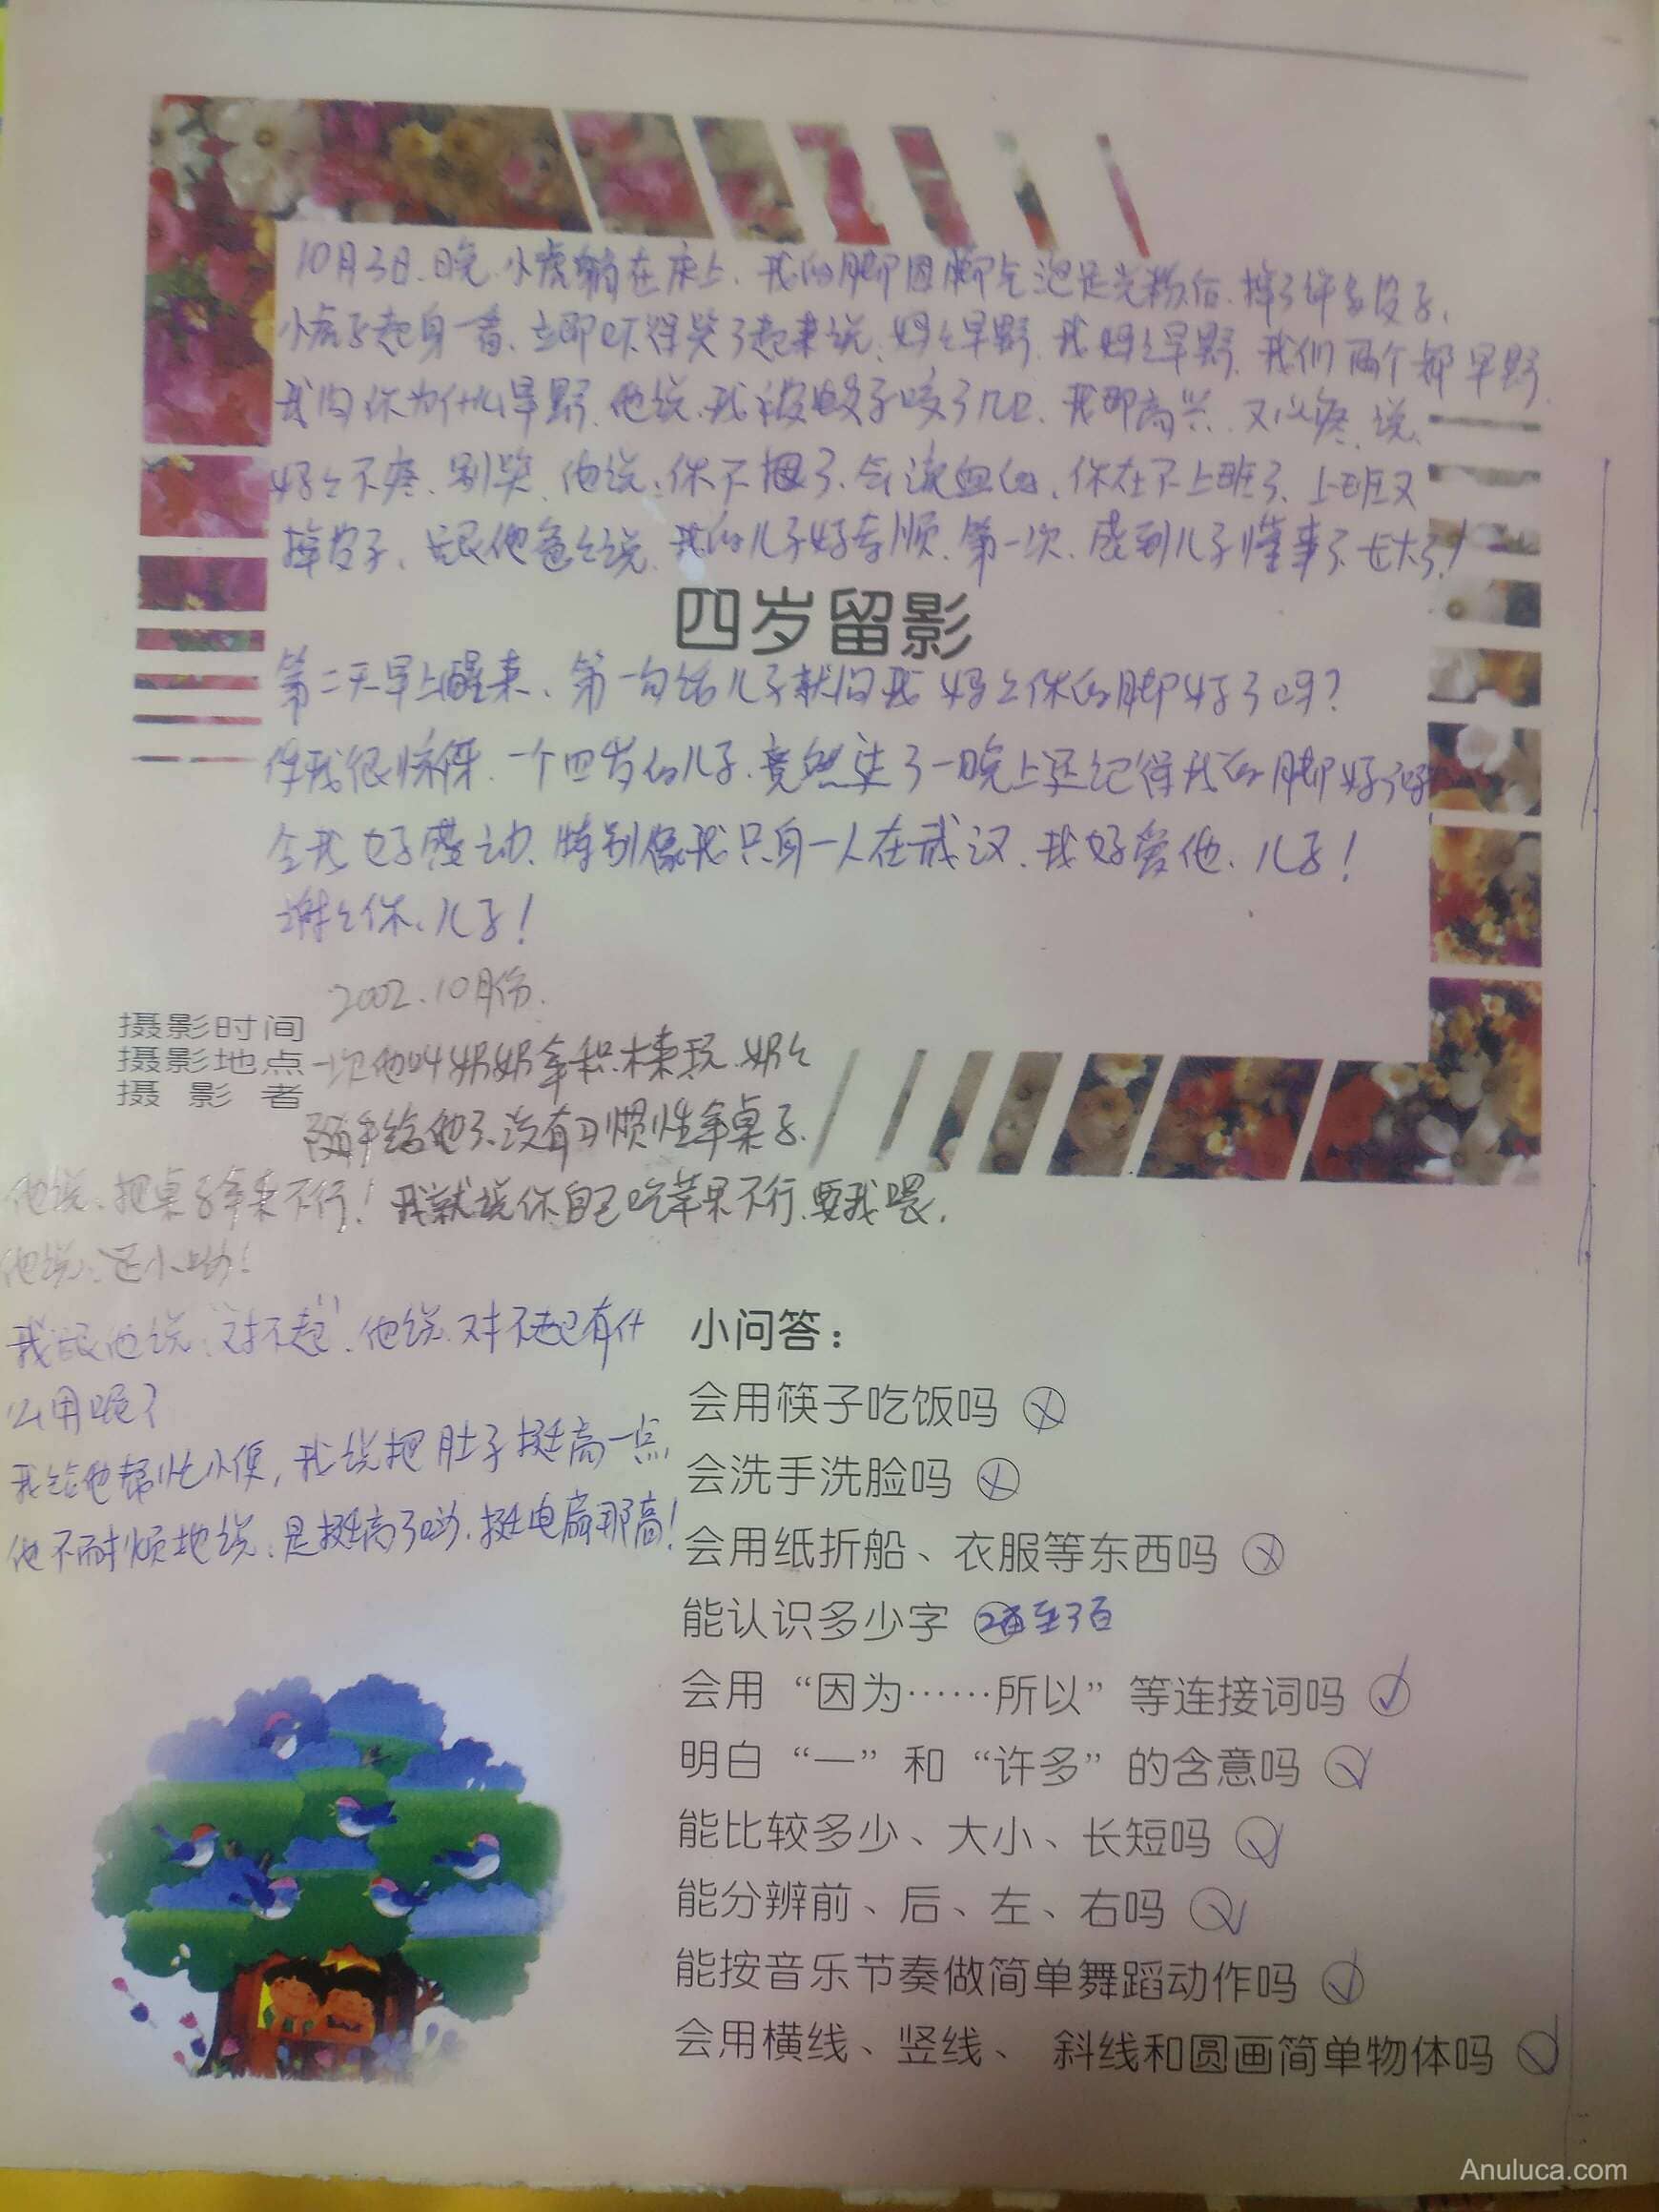 10月3日.晚.小虎躺在床上.我的脚因脚气泡足光粉后.掉了许多皮子.
小虎子起身一看.立即吓得哭了起来说.妈妈早野.我妈妈早野.我们两个都早野.
我问你为什么早野.他说.我被蚊子咬了几口.我即高兴.又心疼.说.
妈妈不疼.别哭.他说.你不掴了.会流血的.你在不上班了.上班又
掉皮子.跟他爸爸说.我的儿子好孝顺.第一次.感到儿子懂事了.长大了!
四岁留影
第二天早上醒来.第一句话儿子就问我妈妈你的脚好了吗?
使我很惊讶.一个四岁的儿子.竟然过了一晚上还记得我的脚好了吗
令我好感动.特别像我只身一人在武汉.我好爱他.儿子!
谢谢你.儿子!
2002.10月份.
摄影时间
摄影地点
摄影者
一次他叫奶奶拿积木来玩.奶奶
随手给他了.没有习惯性拿桌子.
他说.把桌子拿来不行!我就说你自己吃苹果不行.要我喂.
他说.还小呦!
我跟他说."对不起".他说.对不起有什
么用呢?
我给他帮忙小便,我说把肚子挺高一点.
他不耐烦地说.是挺高了呦.挺电扇那高!
小问答：
会用筷子吃饭吗
会洗手洗脸吗
会用纸折船、衣服等东西吗
能认识多少字 2百至3百
会用“因为……所以”等连接词吗
明白“一”和“许多”的含意吗
能比较多少、大小、长短吗
能分辨前、后、左、右吗
能按音乐节奏做简单舞蹈动作吗
会用横线、竖线、斜线和圆画简单物体吗
Anuluca.com